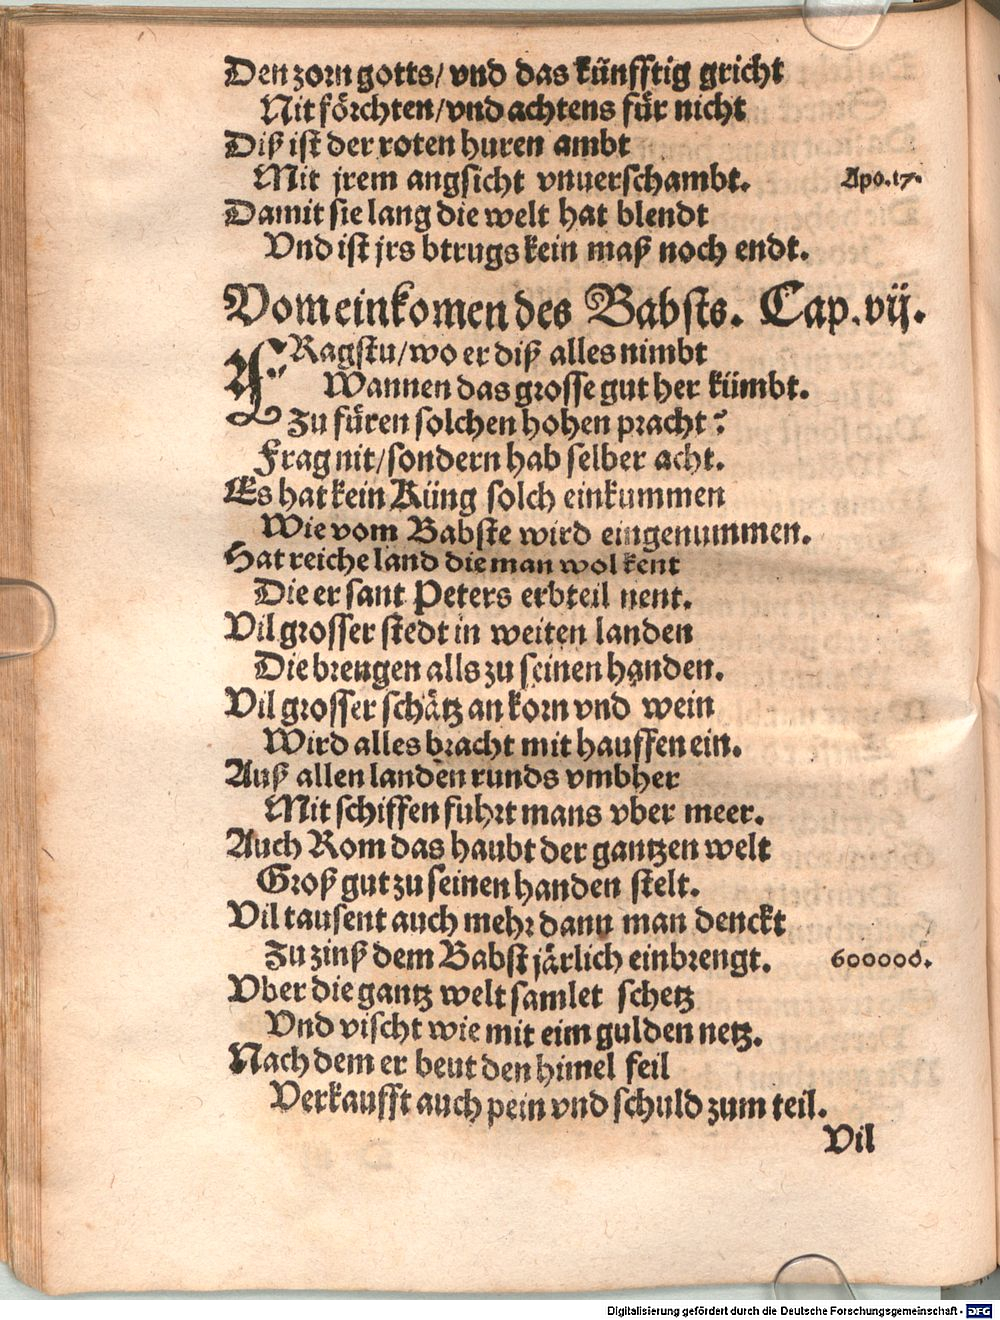 Den zorn gotts/ vnd das künfftig gricht
Nit förchten/ vnd achtens für nicht
Diß ist der roten huren ambt
Mit jrem angsicht vnuerschambt. Apo.17.
Damit sie lang die welt hat blendt
Vnd ist jrs btrugs kein maß noch endt.
Vom einkomen des Babsts. Cap. vij.
FRagstu/ wo er diß alles nimbt
Wannen das grosse gut her kümbt.
Zu füren solchen hohen pracht?
Frag nit/ sondern hab selber acht.
Es hat kein Küng solch einkummen
Wie vom Babste wird eingenummen.
Hat reiche land die man wol kent
Die er sant Peters erbteil nent.
Vil grosser stedt in weiten landen
Die brengen alls zu seinen handen.
Vil grosser schätz an korn vnd wein
Wird alles bracht mit hauffen ein.
Auß allen landen runds vmbher
Mit schiffen fuhrt mans vber meer.
Auch Rom das haubt der gantzen welt
Groß gut zu seinen handen stelt.
Vil tausent auch mehr dann man denckt
Zu zinß dem Babst järlich einbrengt. 600000.
Vber die gantz welt samlet schetz
Vnd vischt wie mit eim gulden netz.
Nach dem er beut den himel feil
Verkaufft auch pein vnd schuld zum teil.
Vil
Digitalisierung gefördert durch die Deutsche Forschungsgemeinschaft - DFG